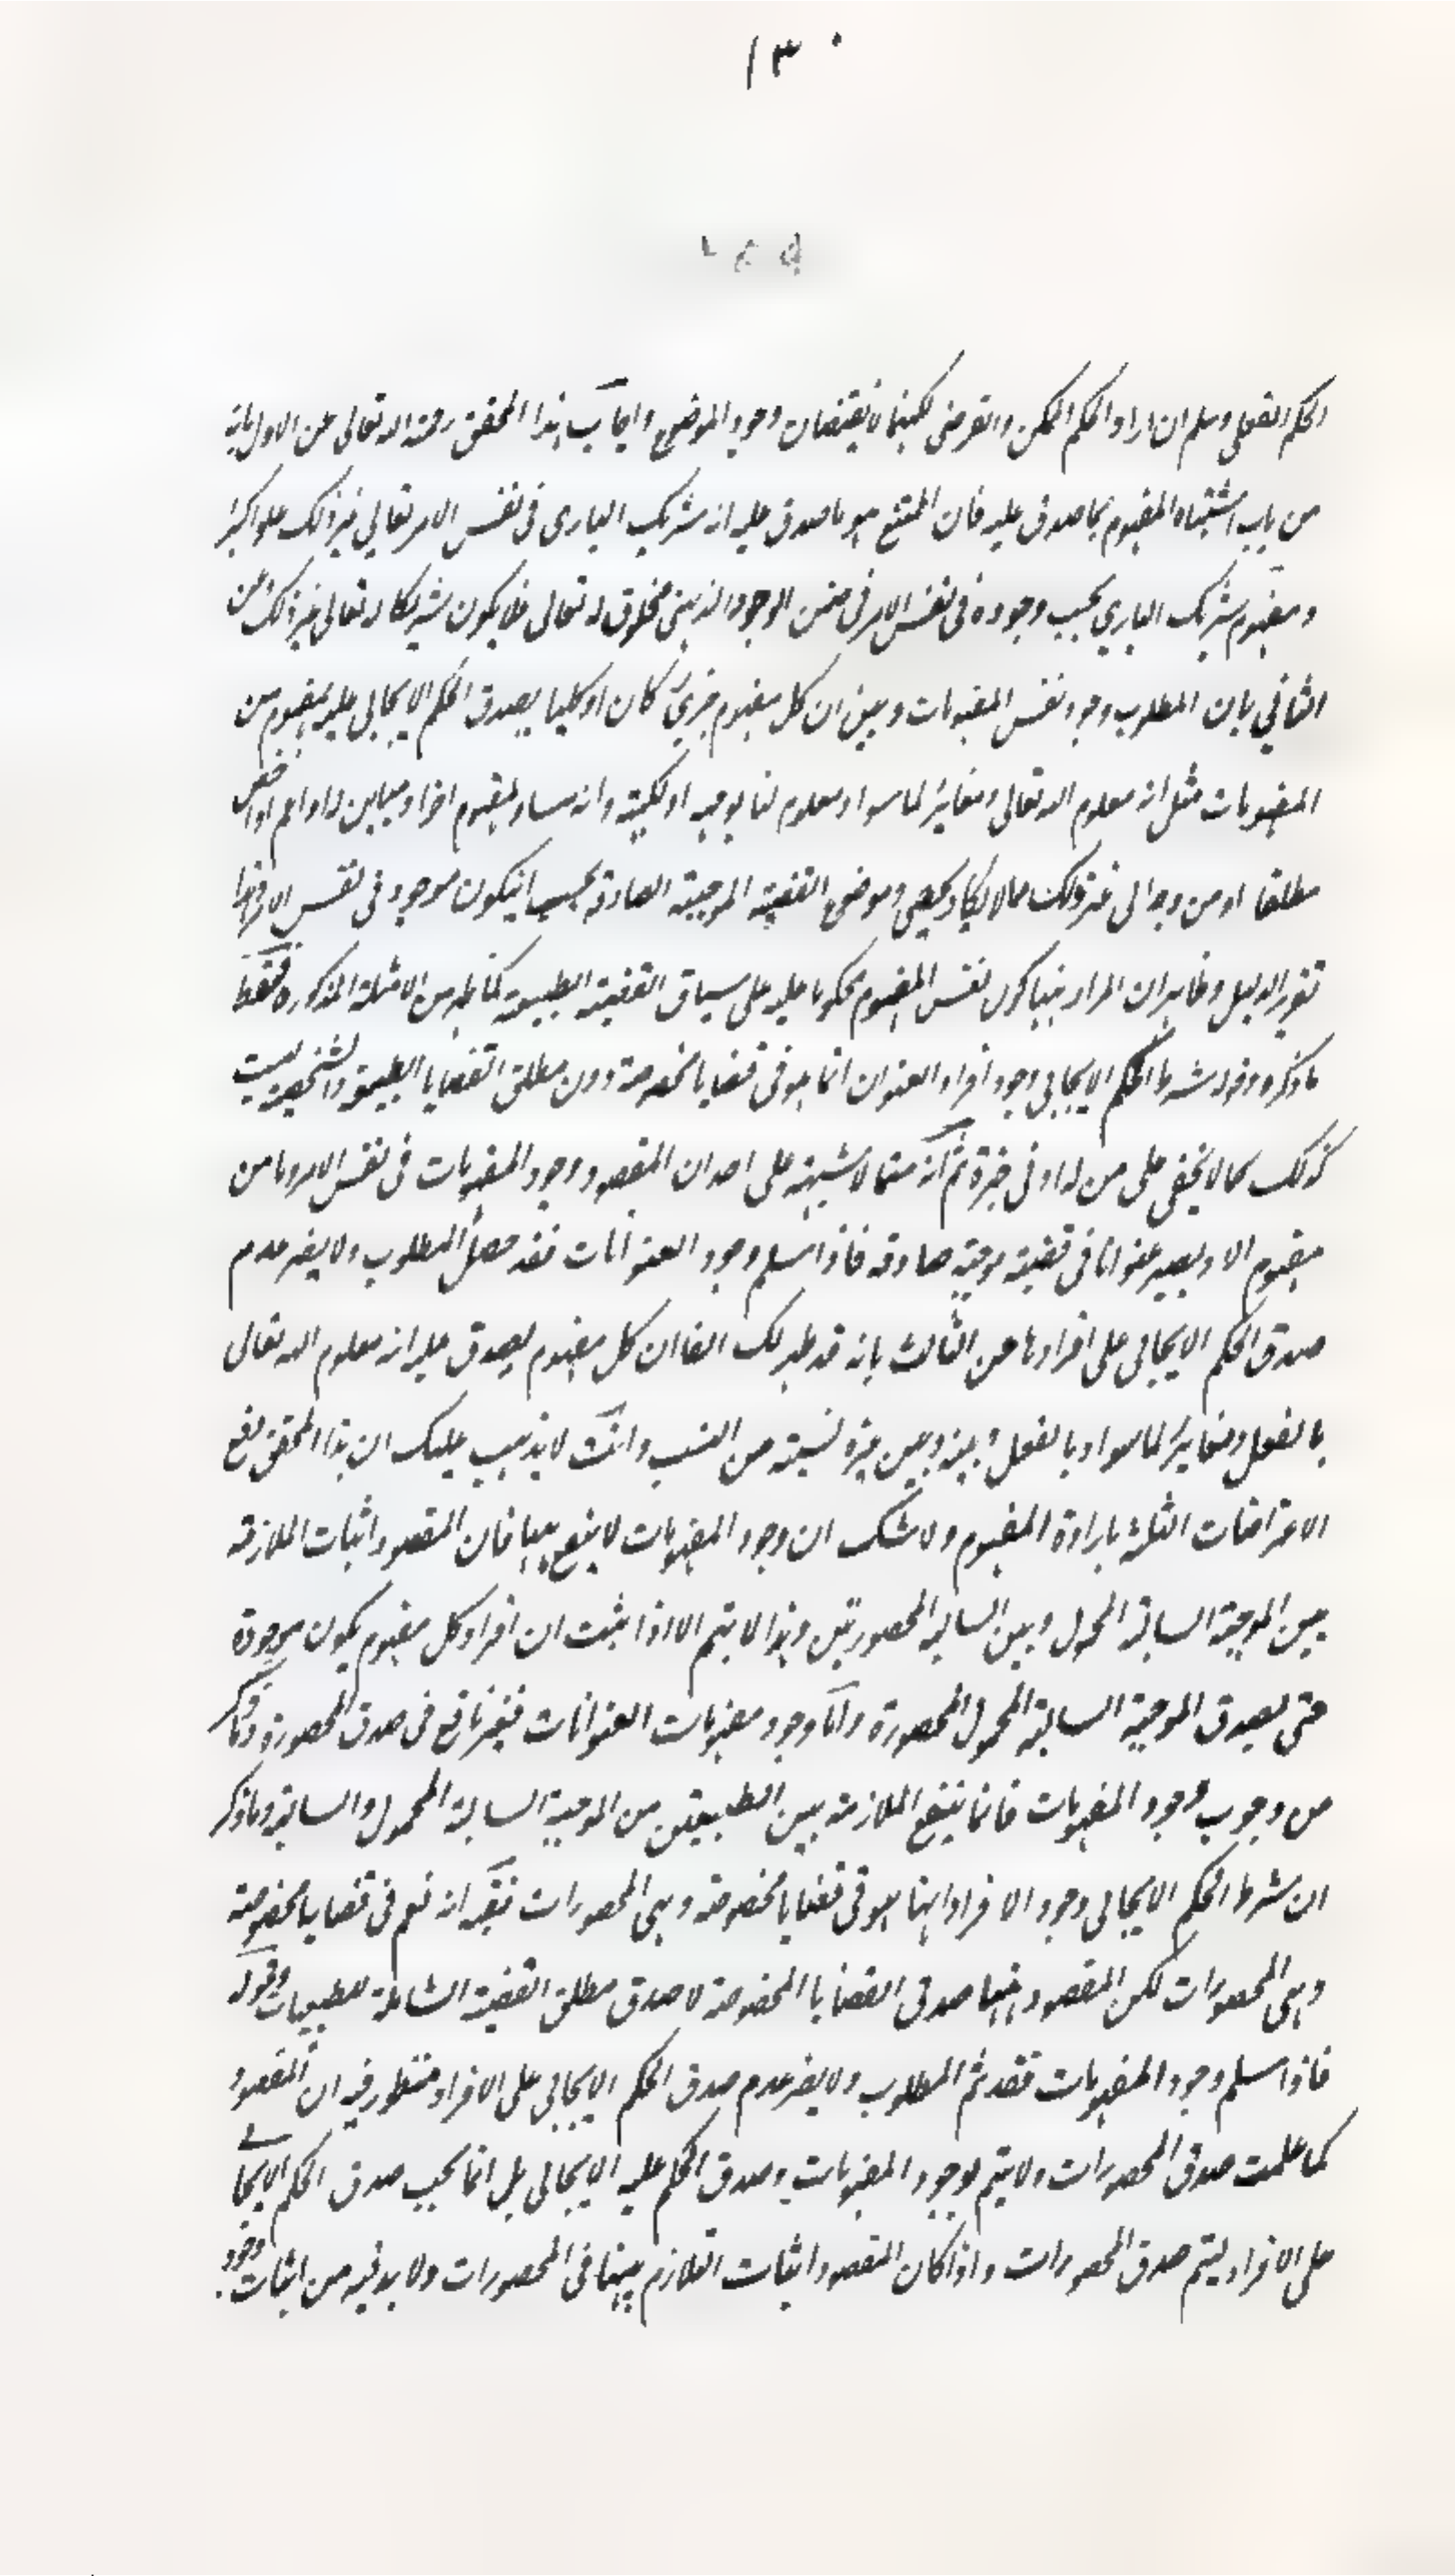 ١٣٠
الحكم الفعلى وسلم ان اراد الحكم الممكن والفرضى لكنهما لا يقتضيان وجود الموضوع واجاب هذا المحقق رحمه الله تعالى عن الاول بانه
من باب اشتباه المفهوم بما صدق عليه فان الممتنع هو ما صدق عليه انه شريك البارى فى نفس الامر تعالى عن ذلك علوا كبيرا
ومفهوم شريك البارى يجب وجوده فى نفس الامر فى ضمن الوجود الذهنى مخلوق له تعالى فلا يكون شريكا له تعالى عن ذلك وعن
الثانى بان المطلوب وجود نفس المفهومات وبين ان كل مفهوم جزئى كان او كليا يصدق الحكم الايجابى عليه بمفهوم من
المفهومات مثل انه معلوم الله تعالى ومغاير لما سواه ومعلوم لنا بوجه او بكنهه وانه مساو لمفهوم اخر او مباين له او اعم او اخص
مطلقا او من وجه الى غير ذلك مما لا يكاد يحصى وموضوع القضية الموجبة الصادقة يجب ان يكون موجودا فى نفس الامر هذا
تقرير الدليل وظاهر ان المراد بهذا كون نفس المفهوم محكوما عليه على سياق القضية الطبيعية كما يظهر من الامثلة المذكورة فقط
ما ذكره وقوله شرط الحكم الايجابى وجود افراد العنوان انما هو فى قضايا مخصوصة دون مطلق القضايا الطبيعية والشخصية ليست
كذلك كما لا يخفى على من له ادنى خبرة ثم انه مما لا يشتبه على احد ان المقصود وجود المفهومات فى نفس الامر وما من
مفهوم الا ويصير عنوانا فى قضية موجبة صادقة فاذا سلم وجود العنوانات فقد حصل المطلوب ولا يضر عدم
صدق الحكم الايجابى على افرادها وعن الثالث بانه قد ظهر لك انفا ان كل مفهوم يصدق عليه انه معلوم الله تعالى
بالفعل ومغاير لما سواه بالفعل وبينه وبين غيره نسبة من النسب وانت لا يذهب عليك ان هذا المحقق دفع
الاعتراضات الثلثة بارادة المفهوم ولا شك ان وجود المفهومات لا ينفع ههنا فان المقصود اثبات الملازمة
بين الموجبة السالبة المحمول وبين السالبة المحصورتين وهذا لا يتم الا اذا ثبت ان افراد كل مفهوم يكون موجودة
حتى يصدق الموجبة السالبة المحمول المحصورة واما وجود مفهومات العنوانات فغير نافع فى صدق المحصورة وما ذكر
من وجوب وجود المفهومات فانما ينفع الملازمة بين الطبيعتين من الموجبة السالبة المحمول والسالبة وما ذكر
ان شرط الحكم الايجابى وجود الافراد انما هو فى قضايا مخصوصة وهى المحصورات ففيه انه نعم فى قضايا مخصوصة
وهى المحصورات لكن المقصود ههنا صدق القضايا المخصوصة لا صدق مطلق القضية الشاملة للطبيعيات وقوله
فاذا سلم وجود المفهومات فقد تم المطلوب ولا يضر عدم صدق الحكم الايجابى على الافراد منظور فيه ان المقصود
كما علمت صدق المحصورات ولا يتم بوجود المفهومات وصدق الحكم عليه الايجابى بل انما يجب صدق الحكم الايجابى
على الافراد ليتم صدق المحصورات واذا كان المقصود اثبات التلازم بينهما فى المحصورات ولا بد فيه من اثبات وجود